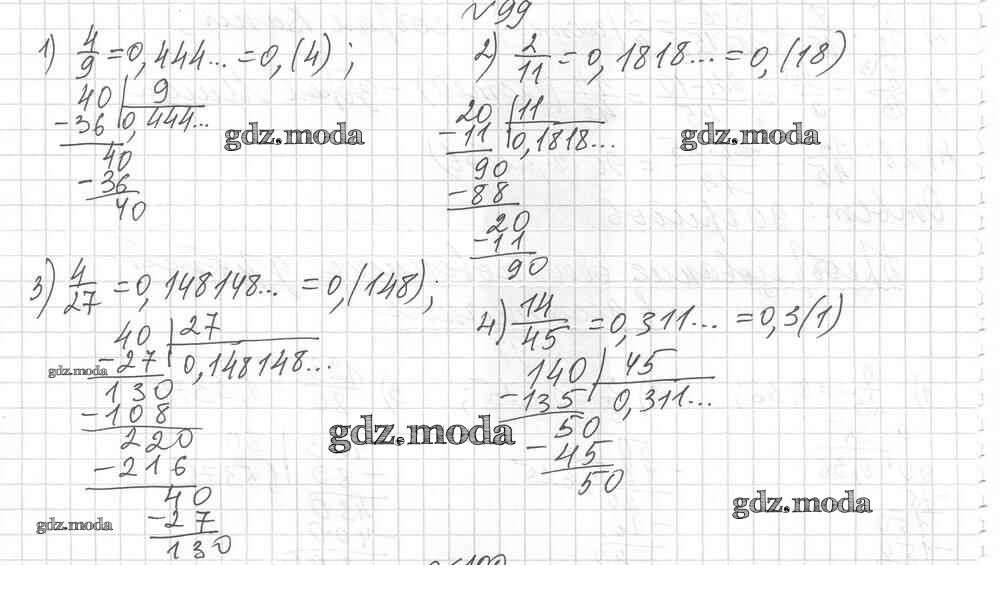 №99
1) 4/9 = 0,444... = 0,(4) ;
40 | 9
-36 0,444...
40
-36
40
2) 2/11 = 0,1818... = 0,(18)
20 | 11
-11 0,1818...
90
-88
20
-11
90
3) 4/27 = 0,148148... = 0,(148);
40 | 27
-27 0,148148...
130
-108
220
-216
40
-27
130
4) 14/45 = 0,311... = 0,3(1)
140 | 45
-135 0,311...
50
-45
50
gdz.moda
gdz.moda
gdz.moda
gdz.moda
gdz.moda
gdz.moda